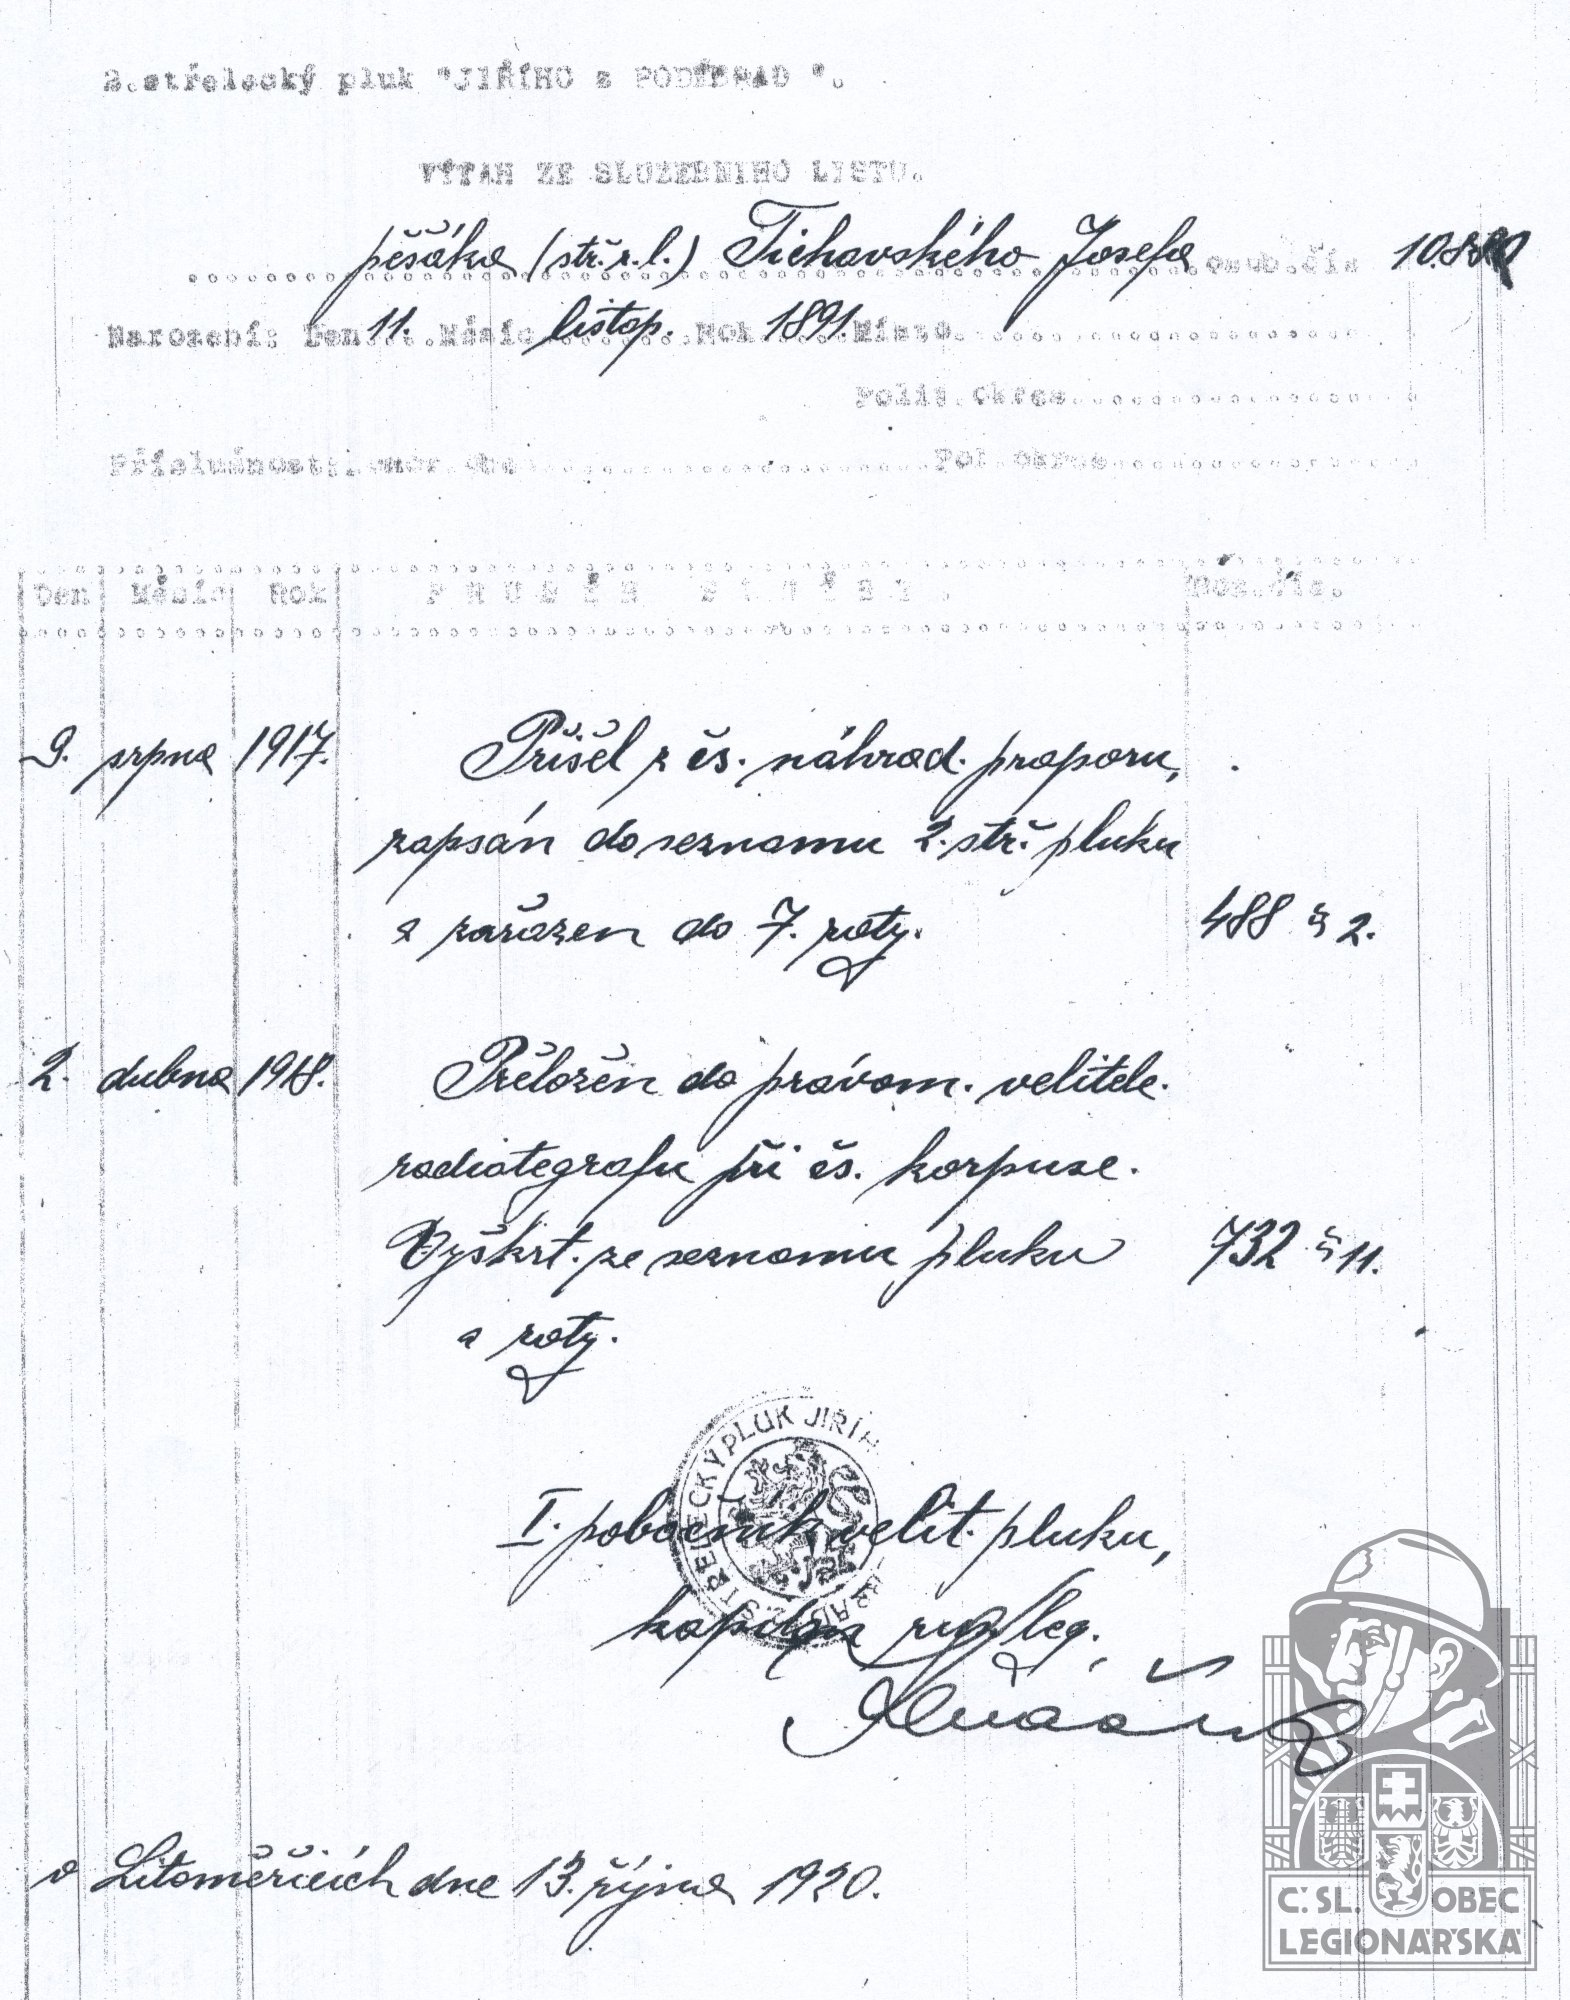 2.střelecký pluk "JIŘÍHO z PODĚBRAD ".
VÝTAH ZE SLUŽEBNIHO LISTU.
pěšáka (stř. r. l.) Tichavského Josefa osob.čís
Narození: Den 11. Měsíc listop. Rok 1891. Místo
Polit. Okres
Příslušnost: Pol. okres
Den Měsíc Rok
9. srpna 1917. Přišel z čs. náhrad. praporu,
zapsán do seznamu 2. stř. pluku
a zařazen do 7. roty. 488 § 2.
2. dubna 1918. Přeložen do právom. velitele.
radiotegrafu při čs. korpuse.
Vyškrt. ze seznamu pluku 732 § 11.
a roty.
STŘELECKÝ PLUK JIŘÍH
I. pobočník velit. pluku,
kapitán rus. leg.
v Litoměřicích dne 13. října 1920.
Č. SL. OBEC
LEGIONÁŘSKÁ